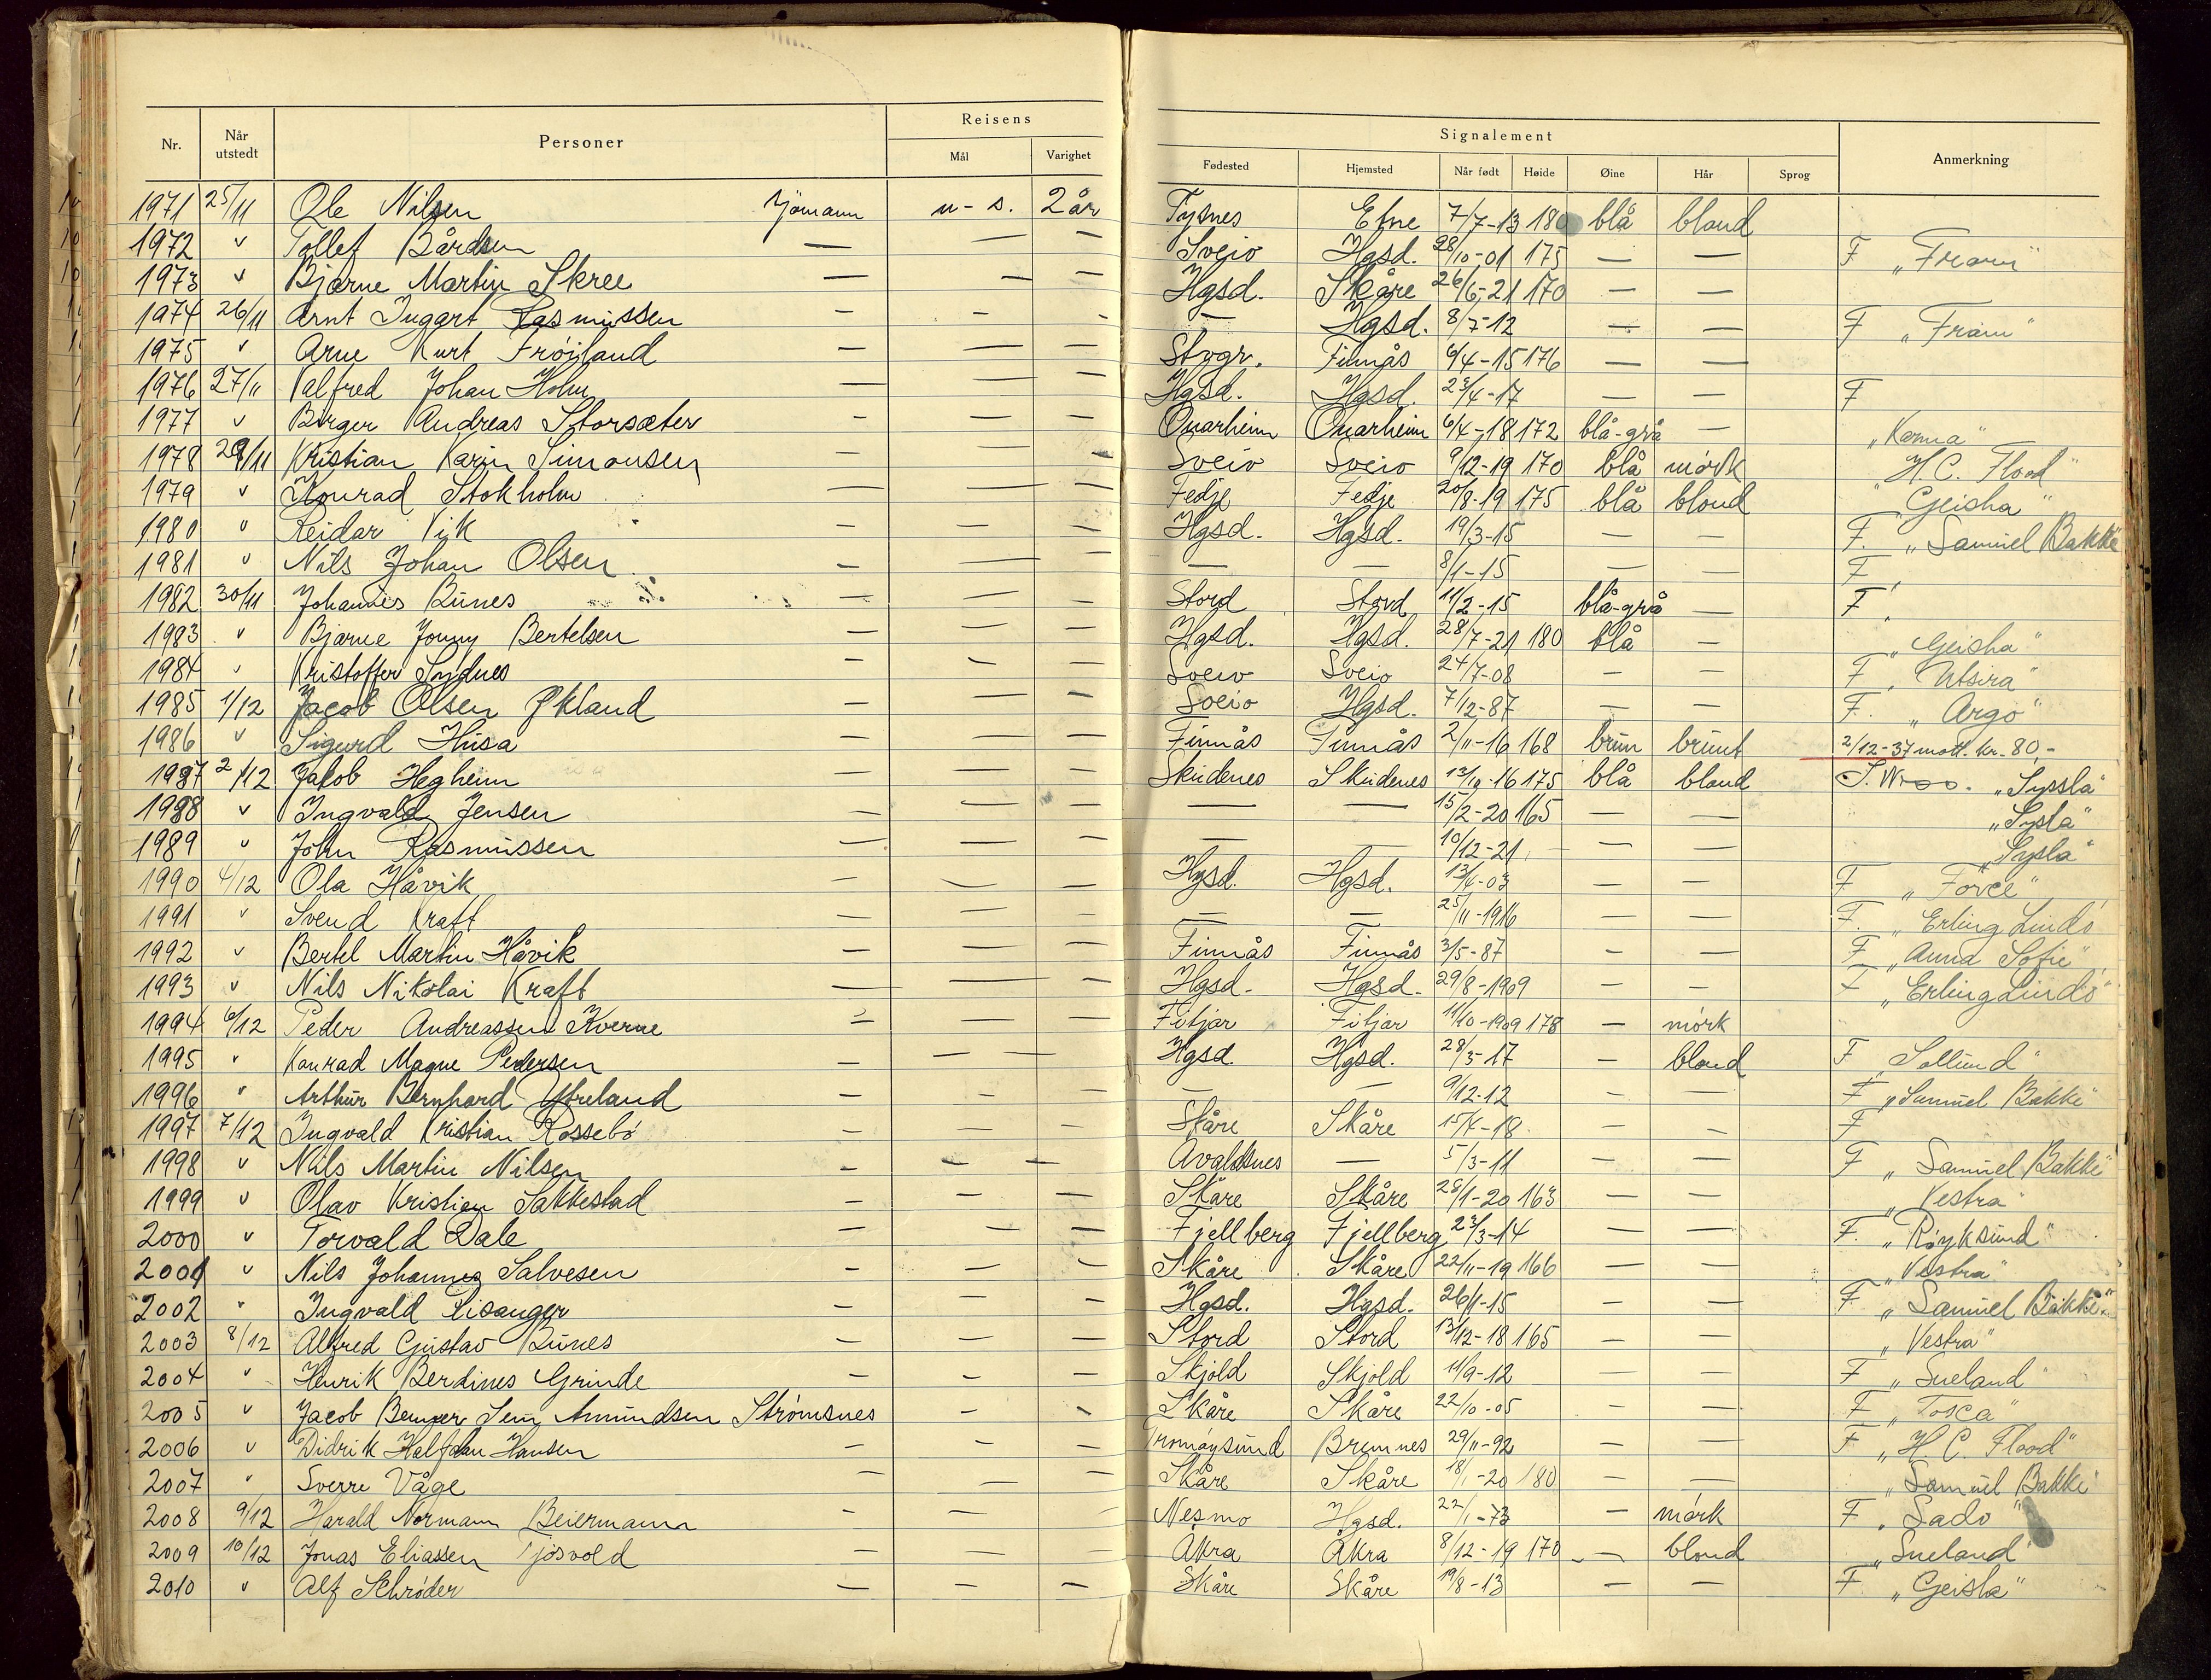 Reisens
Signalement
Nr. Når utstedt Personer Mål Varighet Fødested Hjemsted Når født Høide Øine Hår Sprog Anmerkning
1971 25/11 Ole Nilsen sjömann u-s. 2 år Tysnes Etne 7/7-13 180 blå blond
1972 " Tollef Bårdsen — — — Sveio Hgsd. 28/10-01 175 — — F „Fram“
1973 " Bjarne Martin Skree — — — Hgsd. Skåre 26/6-21 170 — —
1974 26/11 Arnt Ingart Rasmussen — — — — Hgsd. 8/7-12 — — F „Fram“
1975 " Arne Kurt Fröiland — — — Stvgr. Finnås 6/4-15 176 — —
1976 27/11 Valfred Johan Holm — — — Hgsd. Hgsd. 23/4-17 — — F
1977 " Birger Andreas Storsæter — — — Onarheim Onarheim 6/4-18 172 blå-grå — „Karma“
1978 29/11 Kristian Karin Simonsen — — — Sveio Sveio 9/12-19 170 blå mörk „H.C. Flood“
1979 " Konrad Stokholm — — — Fedje Fedje 20/8-19 175 blå blond „Geisha“
1980 " Reidar Vik — — — Hgsd. Hgsd. 19/3-15 — — F. „Samuel Bakke“
1981 " Nils Johan Olsen — — — — — 8/1-15 — — F
1982 30/11 Johannes Bunes — — — Stord Stord 11/2-15 blå-grå — F
1983 " Bjarne Jonny Bertelsen — — — Hgsd. Hgsd. 28/7-21 180 blå — „Geisha“
1984 " Kristoffer Sydnes — — — Sveio Sveio 24/7-08 — — F „Utsira“
1985 1/12 Jacob Olsen Økland — — — Sveio Hgsd. 7/12-87 — — F. „Argo“
1986 " Sigurd Husa — — — Finnås Finnås 2/11-16 168 brun brunt 2/12-37 mott. kr. 80,-
1987 2/12 Jakob Hegheim — — — Skudenes Skudenes 13/10-16 175 blå blond „Syssla“
1988 " Ingvald Jensen — — — — — 15/2-20 165 — — „Sysla“
1989 " John Rasmussen — — — — — 10/12-21 — — „Sysla“
1990 4/12 Ola Håvik — — — Hgsd. Hgsd. 13/4-03 — — F „Force“
1991 " Svend Kraft — — — — — 25/11-1916 — — F. „Erling Lindö“
1992 " Bertel Martin Håvik — — — Finnås Finnås 3/5-87 — — F „Anna Sofie“
1993 " Nils Nikolai Kraft — — — Hgsd. Hgsd. 29/8-1909 — — F „Erling Lindö“
1994 6/12 Peder Andreassen Kverne — — — Fitjar Fitjar 11/10-1909 178 — mörk
1995 " Konrad Magne Pedersen — — — Hgsd. Hgsd. 28/5-17 — blond F „Sollund“
1996 " Arthur Bernhard Ytreland — — — — — 9/12-12 F „Samuel Bakke“
1997 7/12 Ingvald Kristian Rossebö — — — Skåre Skåre 15/4-18 — — F
1998 " Nils Martin Nilsen — — — Avaldsnes — 5/3-11 F „Samuel Bakke“
1999 " Olav Kristian Sakkestad — — — Skåre Skåre 28/1-20 163 — — „Vestra“
2000 " Torvald Dale — — — Fjellberg Fjellberg 23/3-14 — — F. „Röyksund“
2001 " Nils Johannes Salvesen — — — Skåre Skåre 22/11-19 166 — — „Vestra“
2002 " Ingvald Lisanger — — — Hgsd. Hgsd. 26/1-15 — — F „Samuel Bakke“
2003 8/12 Alfred Gustav Bunes — — — Stord Stord 13/12-18 165 — — „Vestra“
2004 " Henrik Berdines Grinde — — — Skjold Skjold 11/9-12 — — F „Sneland“
2005 " Jacob Sem Amundsen Strömsnes — — Skåre Skåre 22/10-05 — — F „Tosca“
2006 " Didrik Halfdan Hansen — — — Tromöysund Bremnes 29/11-92 — — F „H.C. Flood“
2007 " Sverre Våge — — — Skåre Skåre 18/1-20 180 — — „Samuel Bakke“
2008 9/12 Harald Normann Beiermann — — — Nesmo Hgsd. 22/1-73 — mörk F „Sado“
2009 10/12 Jonas Eliassen Tjösvold — — — Åkra Åkra 8/12-19 170 — blond „Sneland“
2010 " Alf Schröder — — — Skåre Skåre 19/8-13 — — F. „Geisha“